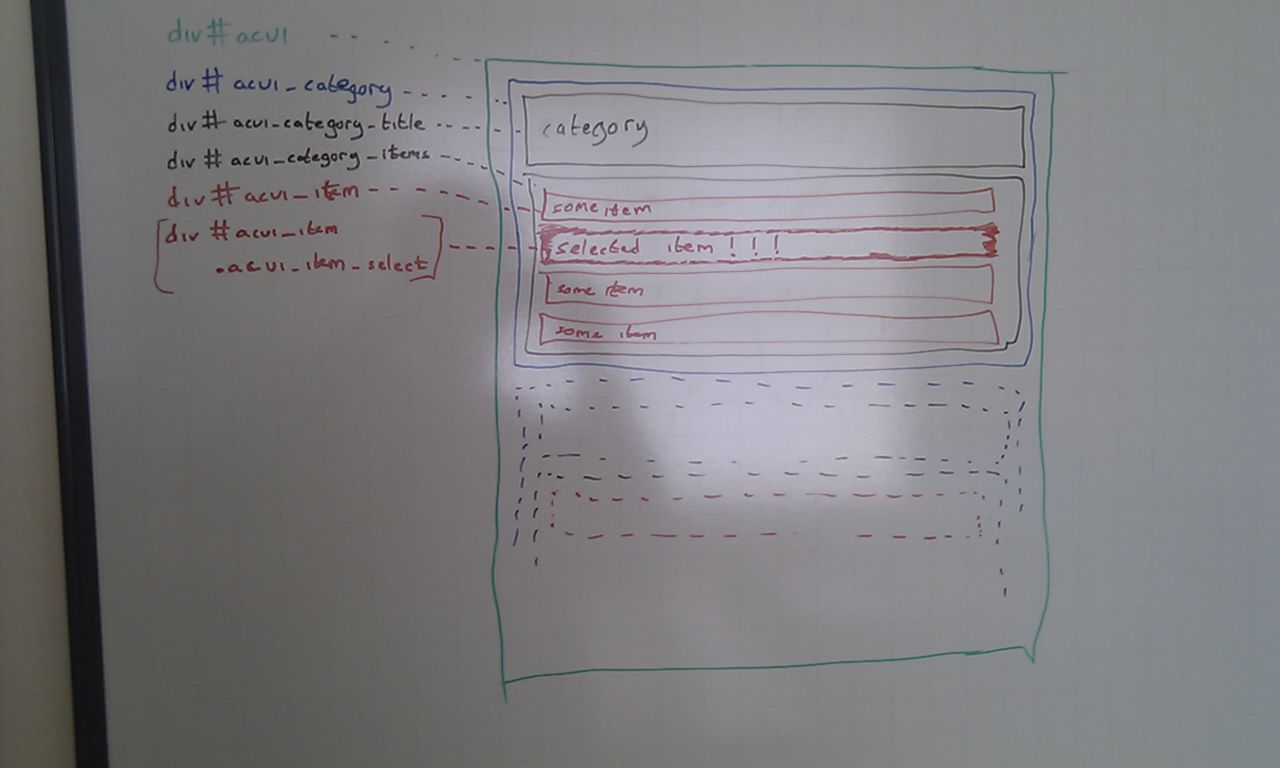 div#acui
div# acui_category
div# acui_category_title
div# acui_category_items
div# acui_item
div #acui_item
.acui_item_select
category
some item
selected item ! ! !
some item
some item